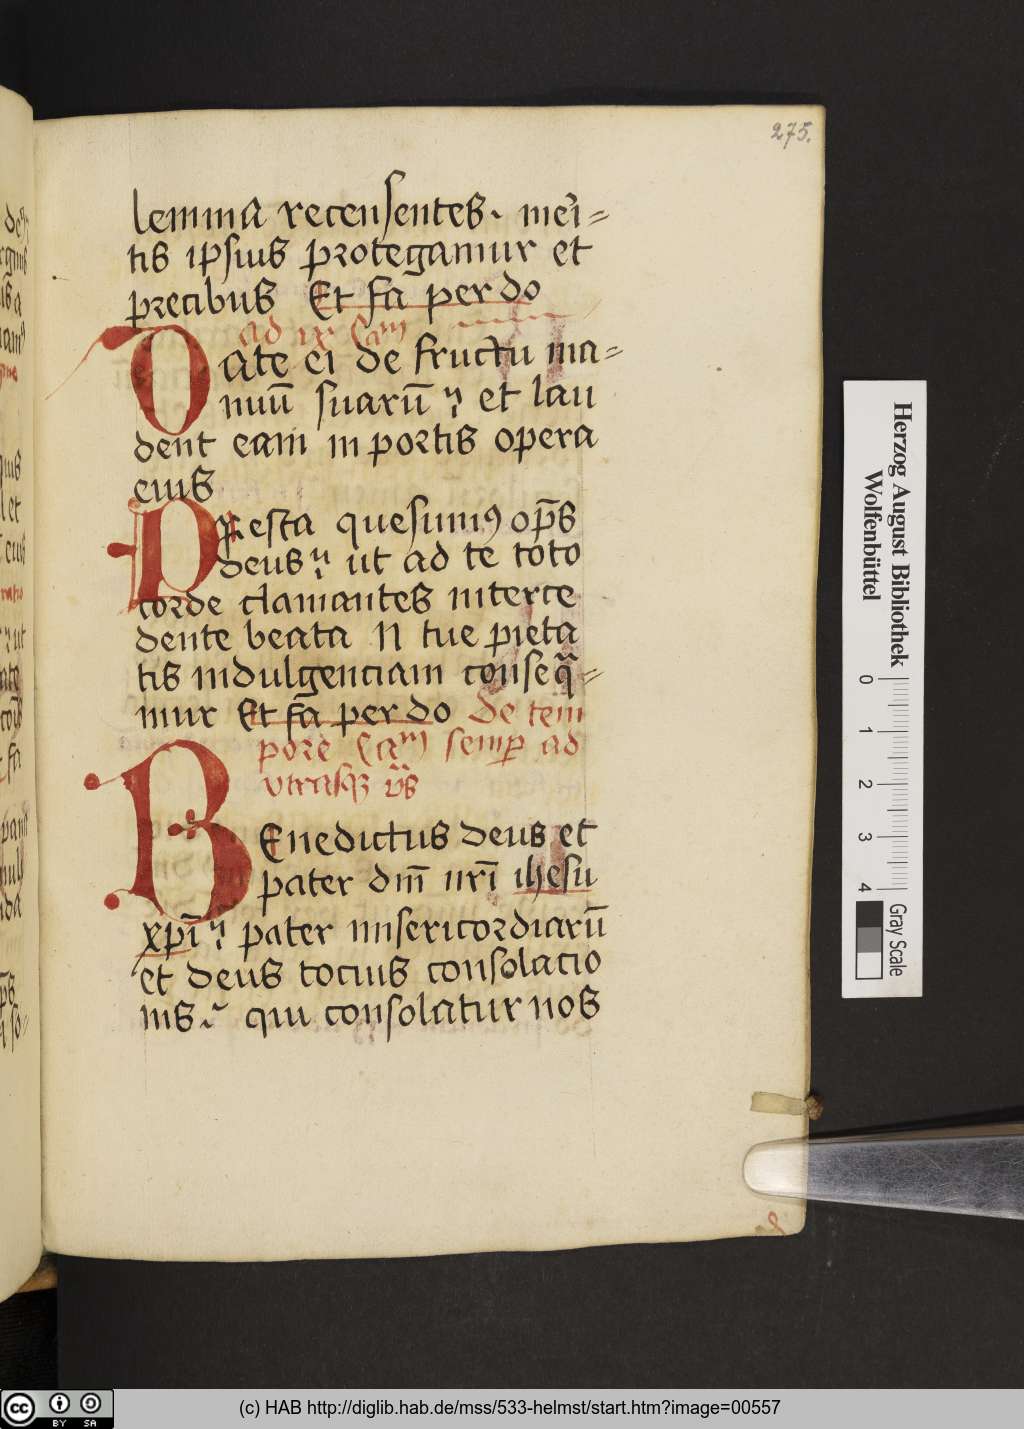 275.
lemma recensentes. mei̅=
tis ipsius protegamur et
precibus Et fa̅ per do
ad ix Ca᷒m
Date ei de fructu ma=
nuu̅ suaru̅ et lau
dent eam in portis opera
eius
Presta quesumꝯ op̅s
deus ut ad te toto
corde clamantes interce
dente beata N tue pieta
tis indulgenciam conseq̅=
mur Et fa̅ per do de tem
pore Cam semp ad
utrasqꝫ v̅s
Benedictus deus et
pater dni̅ nri̅ ihesu
xpi̅ pater misericordiaru̅
et deus tocius consolacio
nis qui consolatur nos
Herzog August Bibliothek
Wolfenbüttel
0 1 2 3 4
Gray Scale
cc BY SA
(c) HAB http://diglib.hab.de/mss/533-helmst/start.htm?image=00557